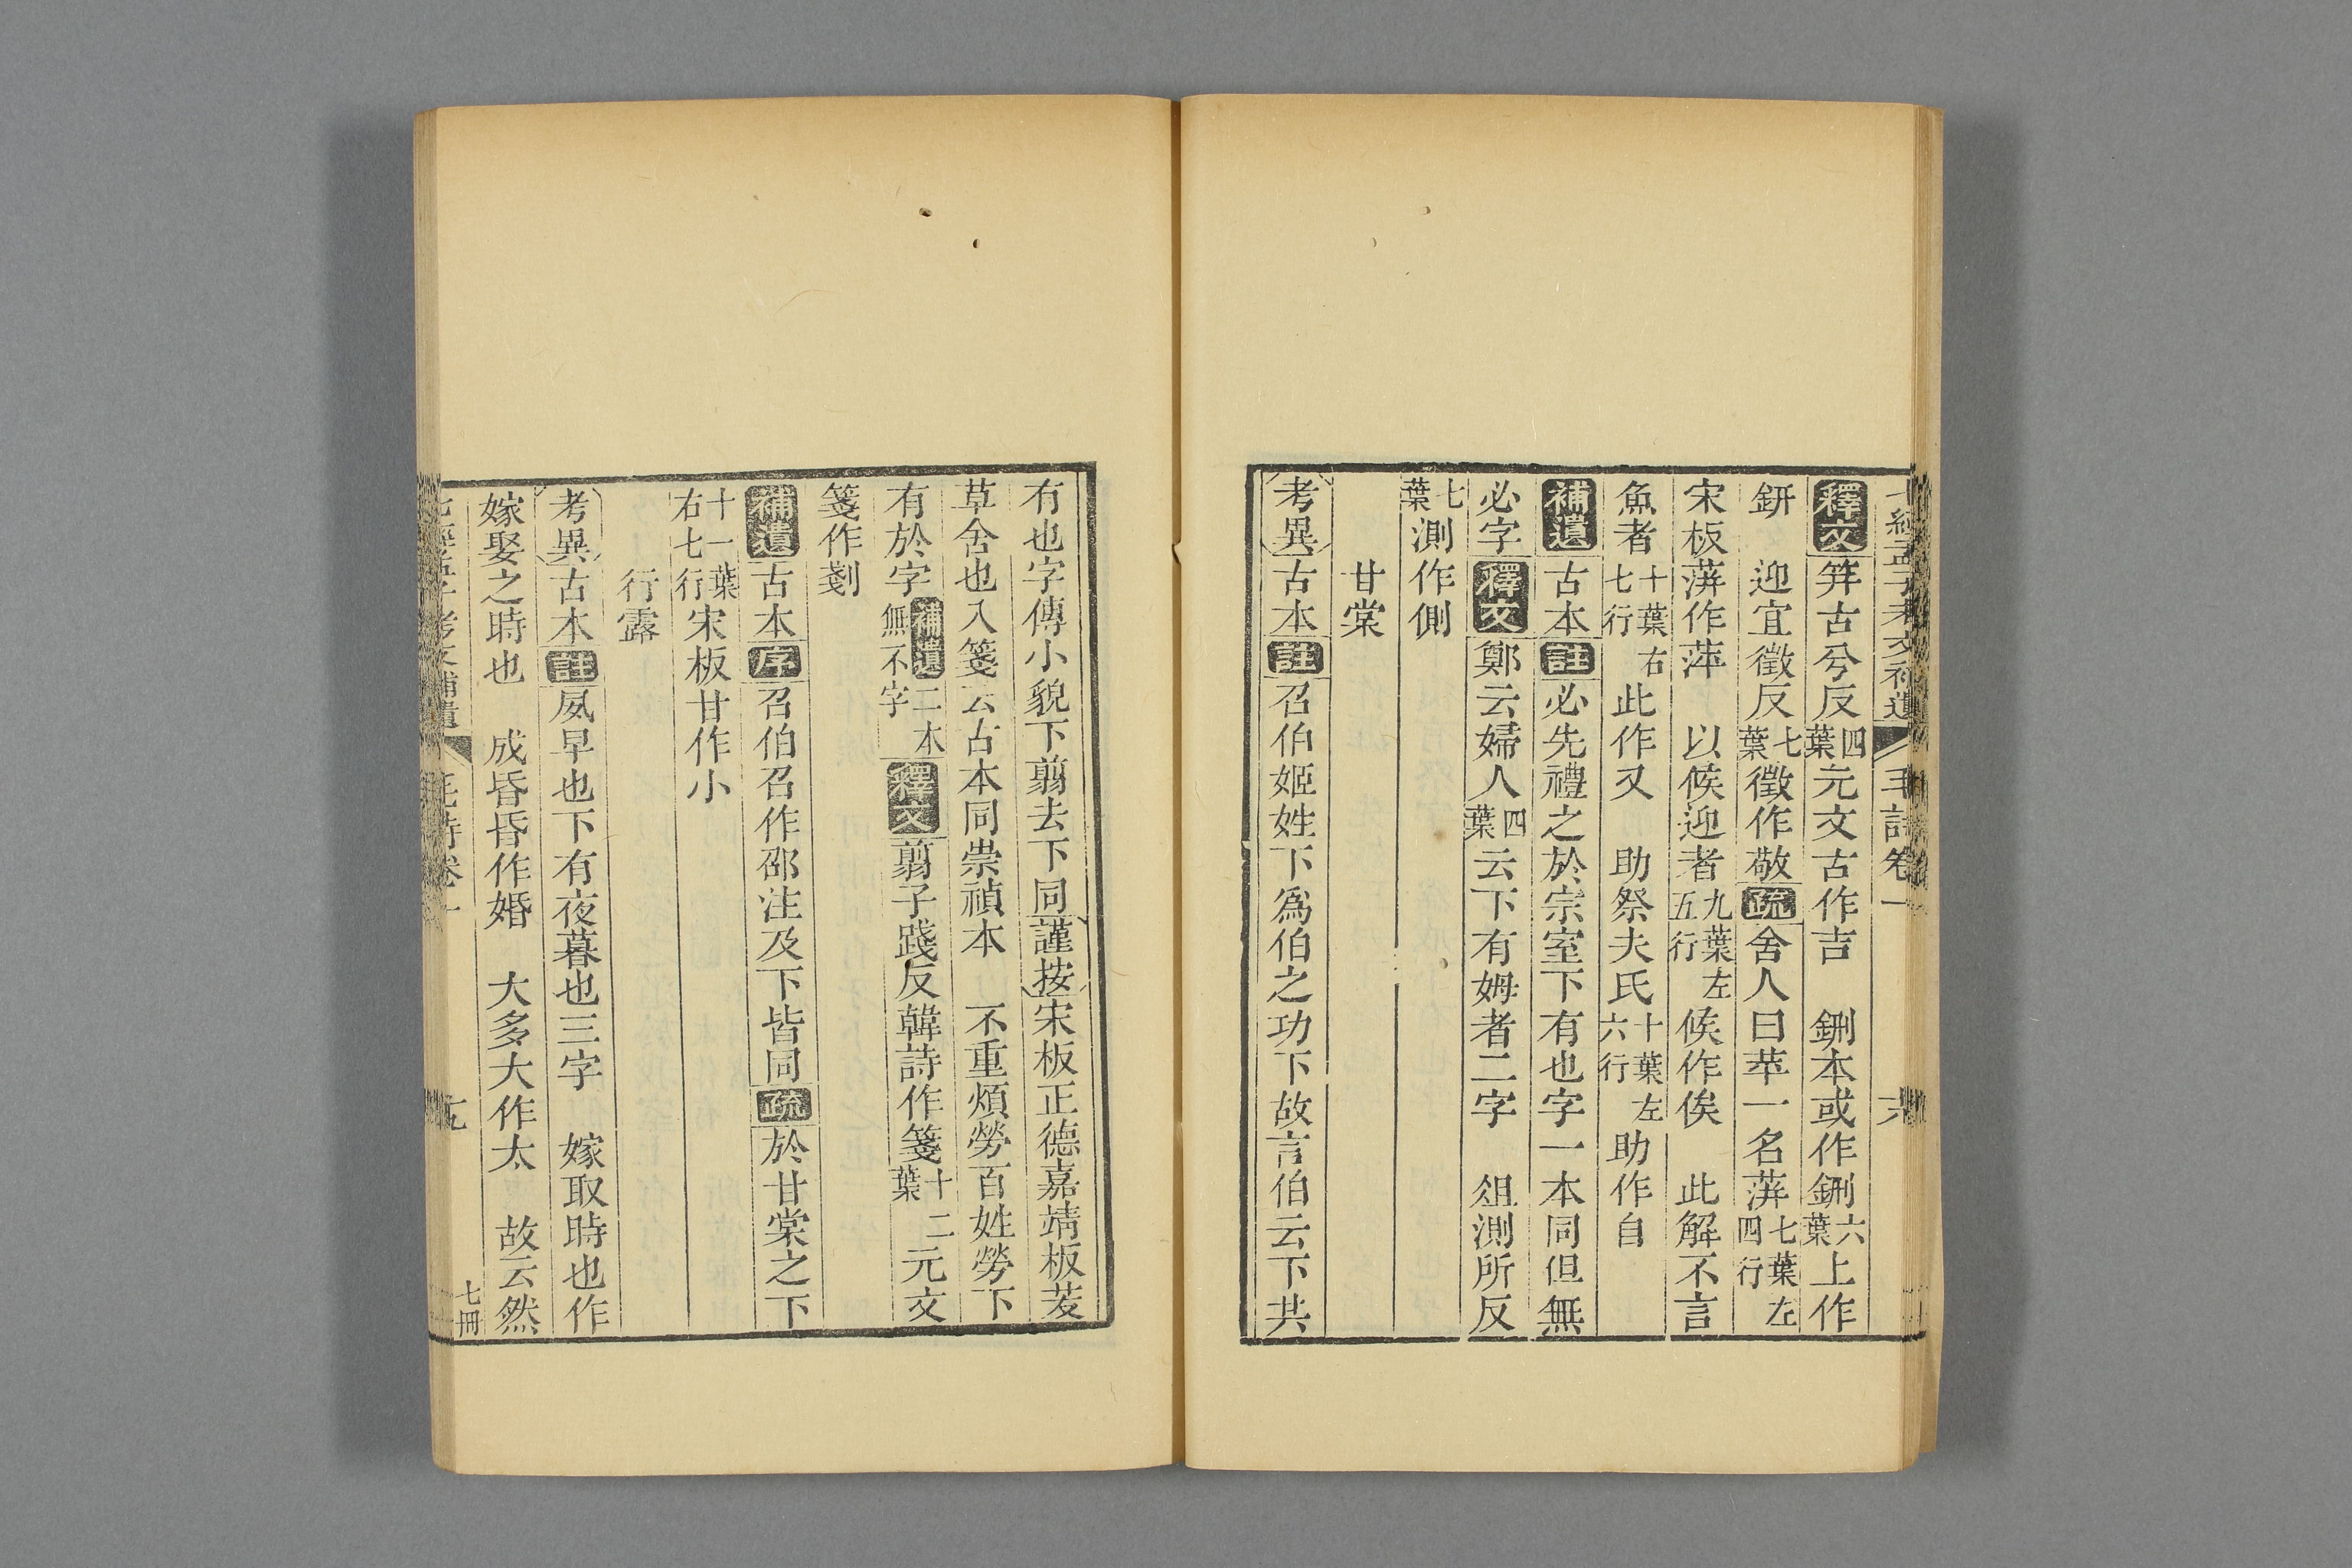 七經孟子考文補遺　毛詩卷一　六
釋文筓古兮反四葉元文古作吉　鉶本或作鉶六葉上作
鈃　迎宜徵反七葉徵作敬疏舍人曰苹一名蓱七葉左四行
宋板蓱作萍　以候迎者九葉左五行候作俟　此解不言
魚者十葉右七行此作又　助祭夫氏十葉左六行助作自
補遺古本註必先禮之於宗室下有也字一本同但無
必字釋文鄭云婦人四葉云下有姆者二字　俎測所反
七葉測作側
甘棠
考異古本註召伯姬姓下爲伯之功下故言伯云下共
有也字傳小貌下翦去下同謹按宋板正德嘉靖板茇
草舍也入箋云古本同崇禎本　不重煩勞百姓勞下
有於字補遺二本無不字釋文翦子踐反韓詩作箋十二葉元文
箋作剗
補遺古本序召伯召作邵注及下皆同疏於甘棠之下
十一葉右七行宋板甘作小
行露
考異古本註夙早也下有夜暮也三字　嫁取時也作
嫁娶之時也　成昏昏作婚　大多大作太　故云然
七經孟子考文補遺　毛詩卷一　九　七冊